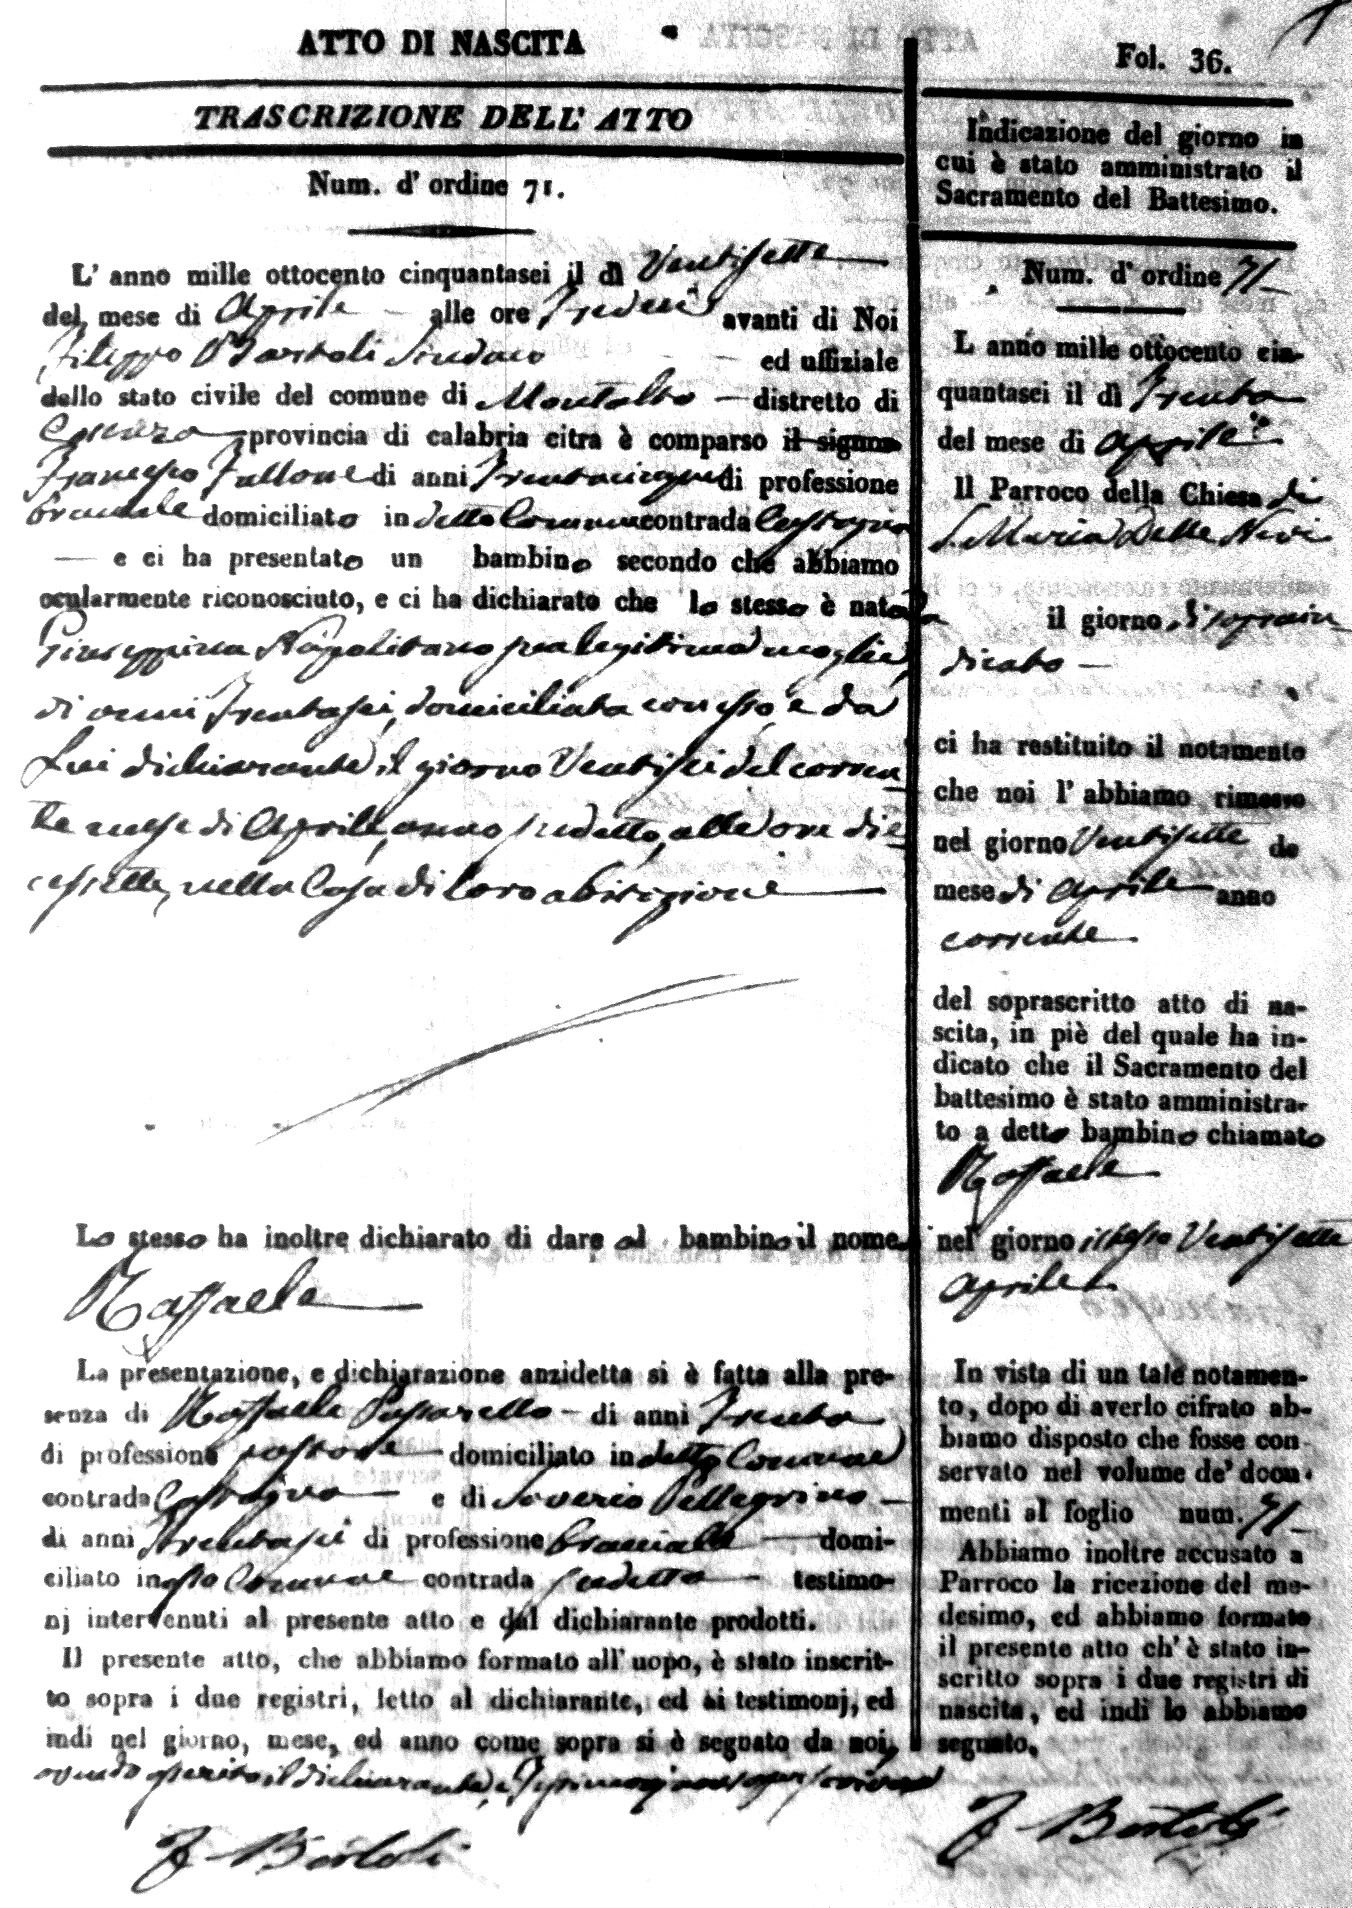 ATTO DI NASCITA
TRASCRIZIONE DELL' ATTO
Num. d' ordine 71.
L' anno mille ottocento cinquantasei il dì Ventisette
del mese di Aprile alle ore Tredici avanti di Noi
Filippo Bartoli Sindaco ed uffiziale
dello stato civile del comune di Montalto distretto di
Cosenza provincia di calabria citra è comparso il signor
Francesco Fullone di anni Trentacinque di professione
bracciale domiciliato in detto Comune contrada
e ci ha presentato un bambino secondo che abbiamo
ocularmente riconosciuto, e ci ha dichiarato che lo stesso è nato da
Giuseppina Napolitano sua legitima moglie,
di anni Trentasei, domiciliata con esso, e da
Lui dichiarante il giorno Ventisei del corren
te mese di Aprile, anno sudetto, alle ore die
cissette, nella Casa di loro abitazione
Lo stesso ha inoltre dichiarato di dare al bambino il nome
Raffaele
La presentazione, e dichiarazione anzidetta si è fatta alla pre-
senza di Raffaele Passarello di anni Trenta
di professione pastore domiciliato in detto Comune
contrada e di Saverio Pellegrino
di anni Trentasei di professione bracciale domi-
ciliato in esso Comune contrada sudetta testimo-
nj intervenuti al presente atto e dal dichiarante prodotti.
Il presente atto, che abbiamo formato all' uopo, è stato inscrit-
to sopra i due registri, letto al dichiarante, ed ai testimonj, ed
indi nel giorno, mese, ed anno come sopra si è segnato da noi,
avendo il dichiarante, e Testimonj non saper scrivere
F Bartoli
Fol. 36.
Indicazione del giorno in
cui è stato amministrato il
Sacramento del Battesimo.
Num. d' ordine 71
L anno mille ottocento cin-
quantasei il dì Trenta
del mese di Aprile
Il Parroco della Chiesa di
S. Maria Delle Nevi
il giorno soprain
dicato
ci ha restituito il notamento
che noi l' abbiamo rimesso
nel giorno Ventisette de
mese di Aprile anno
corrente
del soprascritto atto di na-
scita, in piè del quale ha in-
dicato che il Sacramento del
battesimo è stato amministra-
to a detto bambino chiamato
Raffaele
nel giorno istesso Ventisette
Aprile
In vista di un tale notamen-
to, dopo di averlo cifrato ab-
biamo disposto che fosse con-
servato nel volume de' docu-
menti al foglio num. 71
Abbiamo inoltre accusato a
Parroco la ricezione del me-
desimo, ed abbiamo formato
il presente atto ch' è stato in-
scritto sopra i due registri di
nascita, ed indi lo abbiamo
segnato.
F Bartoli